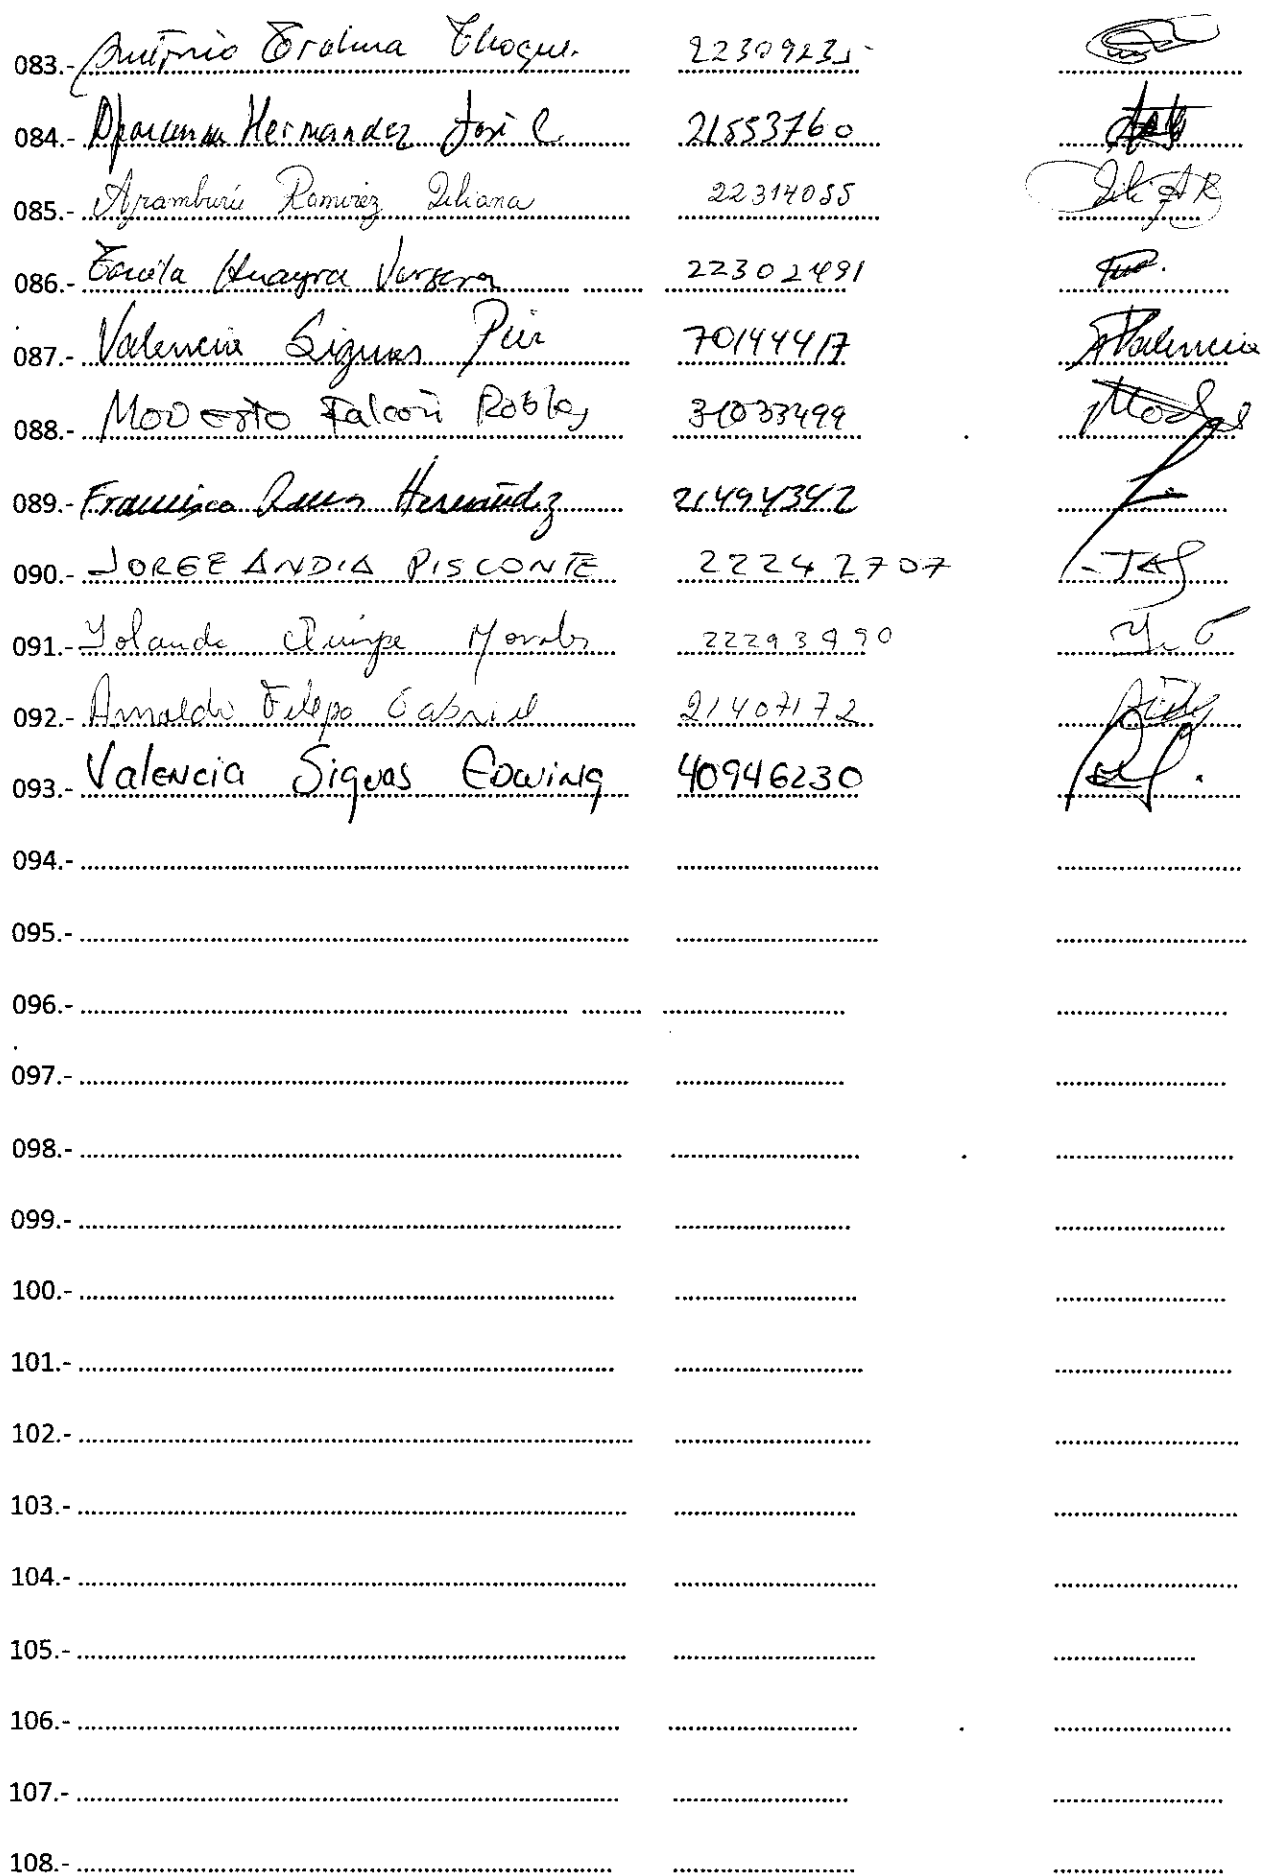 083.- Antonio Choque 2230923
084.- Hernandez José C. 21553760
085.- Aramburú Ramirez Liliana 22314055
086.- Huayra 22302491
087.- Valencia Siguas 70144417 Valencia
088.- Modesto Falconi Robles 31033499
089.- Francisco Hernández 21494342
090.- JORGE ANDIA PISCONTE 22242707 JAP
091.- Yolanda Quispe Morales 22293990
092.- Arnaldo Felipa Gabriel 21407172
093.- Valencia Siguas Edwing 40946230
094.-
095.-
096.-
097.-
098.-
099.-
100.-
101.-
102.-
103.-
104.-
105.-
106.-
107.-
108.-